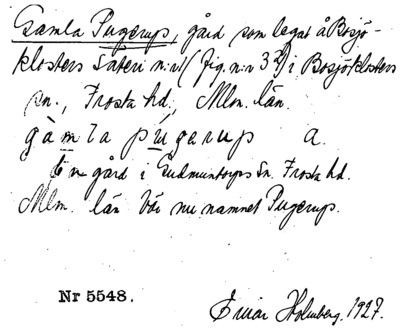 Gamla Pugerup, gård som legat å Bosjö-
klosters säteri n:r 1 (fig. n:r 32) i Bosjöklosters
sn., Frosta hd., Mlm. län.
gàmla púgerup a.
En gård i Gudmuntorps sn. Frosta hd.
Mlm. län bär nu namnet Pugerup.
Nr 5548.
Einar Holmberg. 1927.